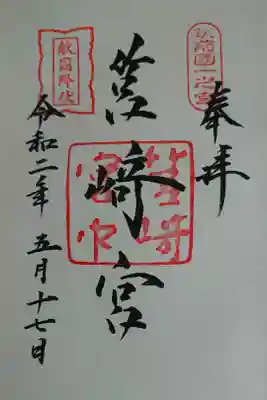 筑前國一之宮
奉拝
筥崎宮
敵國降伏
令和二年 五月十七日